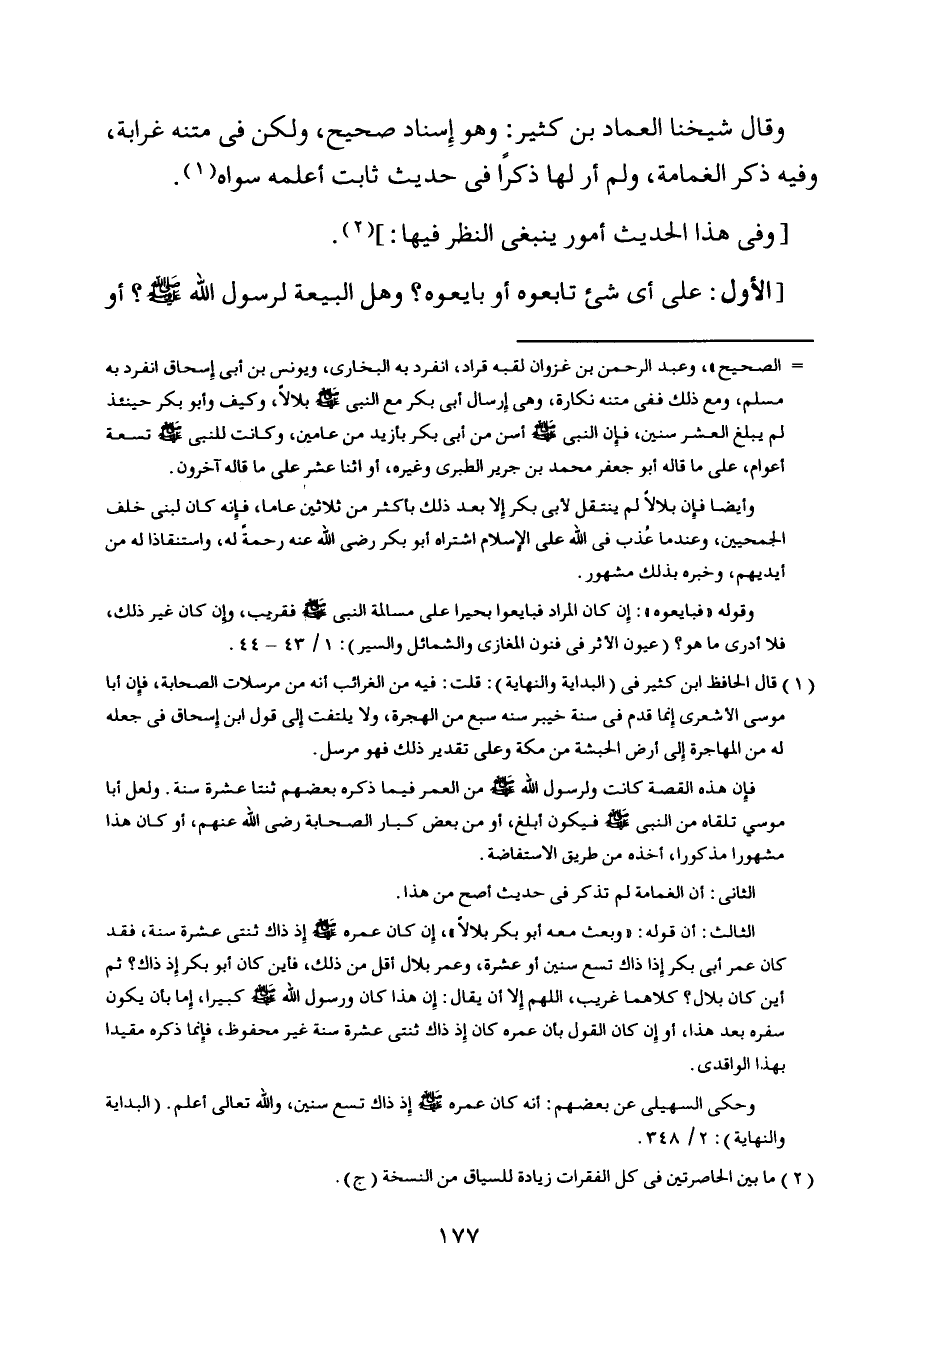 وقال شيخنا العماد بن كثير: وهو إسناد صحيح، ولكن فى متنه غرابة،
وفيه ذكر الغمامة، ولم أر لها ذكراً فى حديث ثابت أعلمه سواه(١).
[وفى هذا الحديث أمور ينبغى النظر فيها:](٢).
[الأول: على أى شئ تابعوه أو بايعوه؟ وهل البيعة لرسول الله ﷺ؟ أو
= الصحيح»، وعبد الرحمن بن غزوان لقبه قراد، انفرد به البخارى، ويونس بن أبى إسحاق انفرد به
مسلم، ومع ذلك ففى متنه نكارة، وهى إرسال أبى بكر مع النبى ﷺ بلالاً، وكيف وأبو بكر حينئذ
لم يبلغ العشر سنين، فإن النبى ﷺ أسن من أبى بكر بأزيد من عامين، وكانت للنبى ﷺ تسعة
أعوام، على ما قاله أبو جعفر محمد بن جرير الطبرى وغيره، أو اثنا عشر على ما قاله آخرون.
وأيضا فإن بلالاً لم ينتقل لأبى بكر إلا بعد ذلك بأكثر من ثلاثين عاما، فإنه كان لبنى خلف
الجمحيين، وعندما عُذب فى الله على الإسلام اشتراه أبو بكر رضى الله عنه رحمةً له، واستنقاذا له من
أيديهم، وخبره بذلك مشهور.
وقوله «فبايعوه»: إن كان المراد فبايعوا بحيرا على مسالمة النبى ﷺ فقريب، وإن كان غير ذلك،
فلا أدرى ما هو؟ (عيون الأثر فى فنون المغازى والشمائل والسير): ١/ ٤٣ – ٤٤.
(١) قال الحافظ ابن كثير فى (البداية والنهاية): قلت: فيه من الغرائب أنه من مرسلات الصحابة، فإن أبا
موسى الأشعرى إنما قدم فى سنة خيبر سنه سبع من الهجرة، ولا يلتفت إلى قول ابن إسحاق فى جعله
له من المهاجرة إلى أرض الحبشة من مكة وعلى تقدير ذلك فهو مرسل.
فإن هذه القصة كانت ولرسول الله ﷺ من العمر فيما ذكره بعضهم ثنتا عشرة سنة. ولعل أبا
موسي تلقاه من النبى ﷺ فيكون أبلغ، أو من بعض كبار الصحابة رضى الله عنهم، أو كان هذا
مشهورا مذكورا، أخذه من طريق الاستفاضة.
الثانى: أن الغمامة لم تذكر فى حديث أصح من هذا.
الثالث: أن قوله: «وبعث معه أبو بكر بلالاً»، إن كان عمره ﷺ إذ ذاك ثنتى عشرة سنة، فقد
كان عمر أبى بكر إذا ذاك تسع سنين أو عشرة، وعمر بلال أقل من ذلك، فأين كان أبو بكر إذ ذاك؟ ثم
أين كان بلال؟ كلاهما غريب، اللهم إلا أن يقال: إن هذا كان ورسول الله ﷺ كبيرا، إما بأن يكون
سفره بعد هذا، أو إن كان القول بأن عمره كان إذ ذاك ثنتى عشرة سنة غير محفوظ، فإنما ذكره مقيدا
بهذا الواقدى.
وحكى السهيلى عن بعضهم: أنه كان عمره ﷺ إذ ذاك تسع سنين، والله تعالى أعلم. (البداية
والنهاية): ٢/ ٣٤٨.
(٢) ما بين الحاصرتين فى كل الفقرات زيادة للسياق من النسخة (ج).
١٧٧